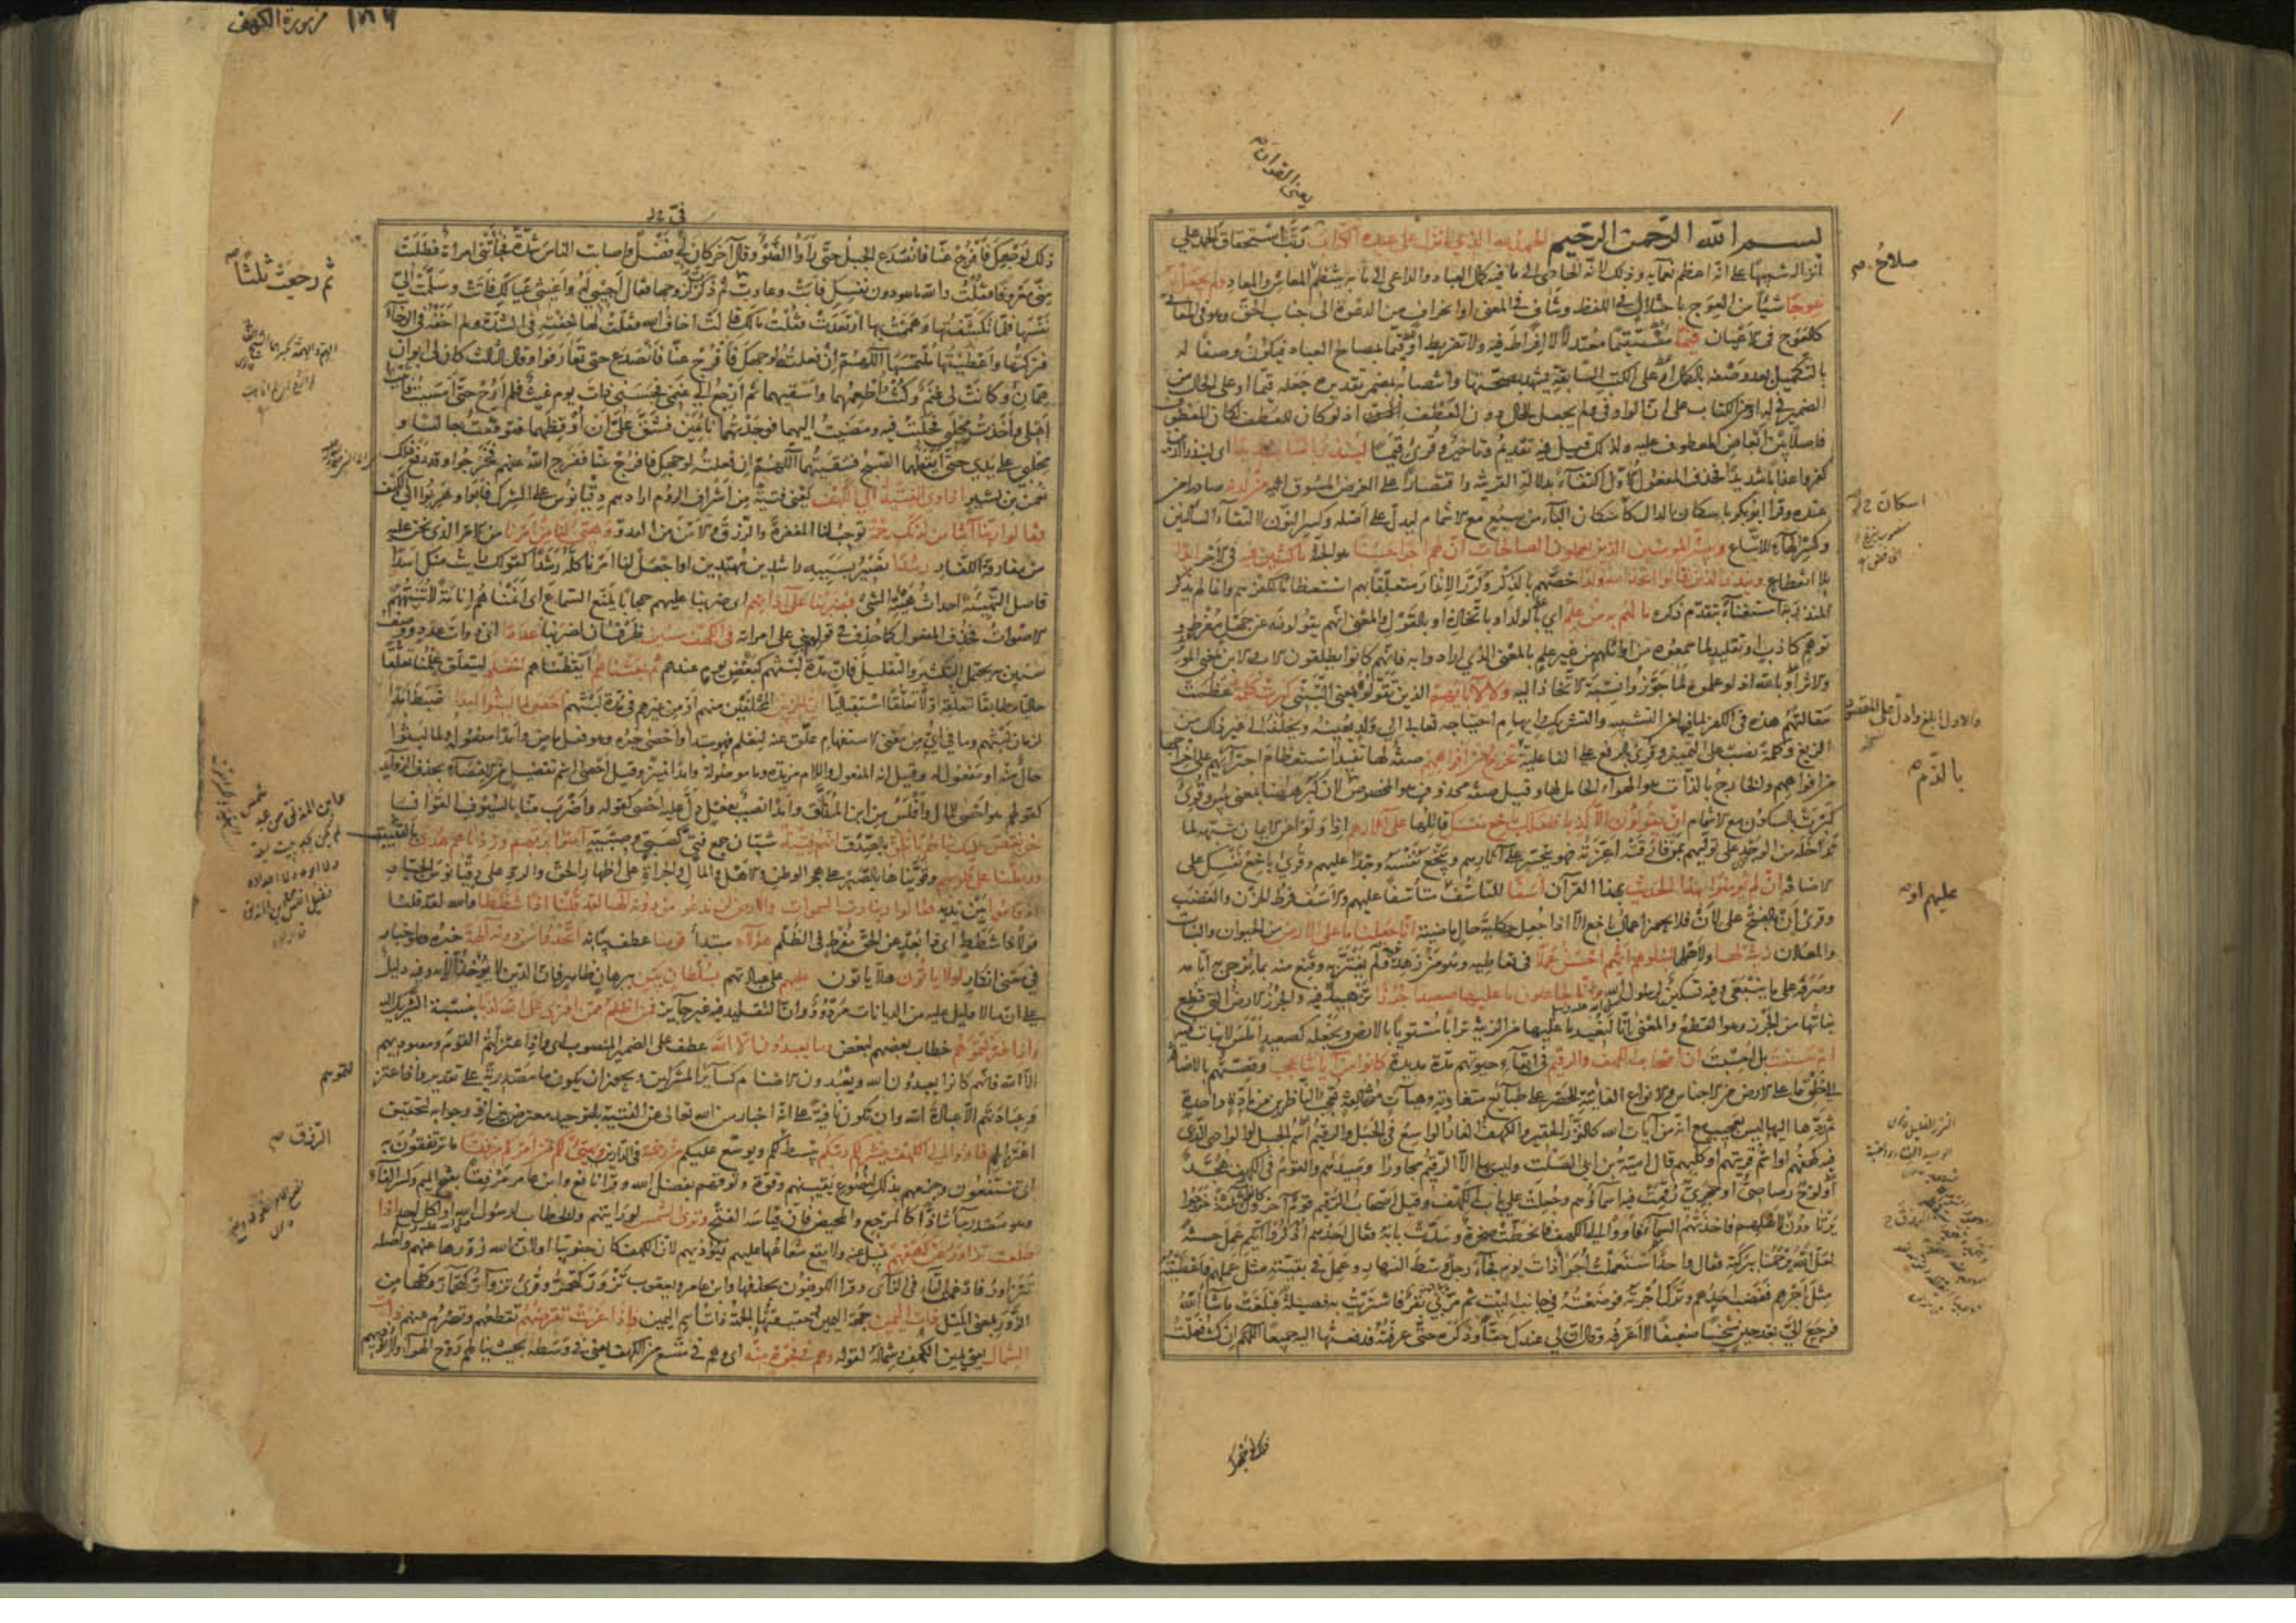 يعنى القرآن
بسم الله الرحمن الرحيم الحمد لله الذي انزل على عبده الكتاب رتب استحقاق الحمد على
انزاله تنبيها على انه اعظم نعمائه وذلك لانه الهادى الى ما فيه كمال العباد والداعى الى ما به ينتظم المعاش والمعاد ولم يجعل له
عوجا شيئا من العوج باختلال فى اللفظ وتناف فى المعنى او انحراف من الدعوة الى جناب الحق وهو فى المعانى
كالعوج فى الاعيان قيما مستقيما معتدلا لا افراط فيه ولا تفريط او قيما بمصالح العباد فيكون وصفا له
بالتكميل بعد وصفه بالكمال او على الكتب السابقة يشهد بصحتها وانتصابه بمضمر تقديره جعله قيما او على الحال من
الضمير فى له او من الكتاب على ان الواو فى ولم يجعل للحال دون العطف اذ لو كان للعطف لكان المعطوف
فاصلا بين ابعاض المعطوف عليه ولذلك قيل فيه تقديم وتاخير وقرئ قيما لينذر باسا شديدا اى لينذر الذين
كفروا عذابا شديدا فحذف المفعول الاول اكتفاء بدلالة القرينة واقتصارا على الغرض المسوق اليه من لدنه صادرا من
عنده وقرأ ابو بكر باسكان الدال كاسكان الباء من سبع مع الاشمام ليدل على اصله وكسر النون لالتقاء الساكنين
وكسر الهاء للاتباع ويبشر المؤمنين الذين يعملون الصالحات ان لهم اجرا حسنا هو الجنة ماكثين فيه فى الاجر ابدا
بلا انقطاع وينذر الذين قالوا اتخذ الله ولدا خصهم بالذكر وكرر الانذار متعلقا بهم استعظاما لكفرهم وانما لم يذكر
المنذر به استغناء بتقدم ذكره ما لهم به من علم اى بالولد او باتخاذه او بالقول والمعنى انهم يقولونه عن جهل مفرط و
توهم كاذب او تقليد لما سمعوه من اوائلهم من غير علم بالمعنى الذي ارادوا به فانهم كانوا يطلقون الاب والابن بمعنى المؤثر
والاثر او بالله اذ لو علموه لما جوزوا نسبة الاتخاذ اليه ولا لآبائهم الذين تقولوه بمعنى التبنى كبرت كلمة عظمت
مقالتهم هذه فى الكفر لما فيها من التشبيه والتشريك وايهام احتياجه تعالى الى ولد يعينه ويخلفه الى غير ذلك من
الزيغ وكلمة نصب على التمييز وقرئ بالرفع على الفاعلية تخرج من افواههم صفة لها تفيد استعظام اجترائهم على اخراجها
من افواههم والخارج بالذات هو الهواء الحامل لها وقيل صفة محذوف هو المخصوص لان كبر ههنا بمعنى بئس وقرئ
كبرت بالسكون مع الاشمام ان يقولون الا كذبا فلعلك باخع نفسك قاتلها على آثارهم اذا ولوا عن الايمان شبهه لما
تداخله من الوجد على توليهم بمن فارقته اعزته فهو يتحسر على آثارهم ويبخع نفسه وجدا عليهم وقرئ باخع نفسك على
الاضافة ان لم يؤمنوا بهذا الحديث بهذا القرآن اسفا للتاسف او متأسفا عليهم والاسف فرط الحزن والغضب
وقرئ ان بالفتح على لان فلا يجوز اعمال باخع الا اذا جعل حكاية حال ماضية انا جعلنا ما على الارض من الحيوان والنبات
والمعادن زينة لها ولاهلها لنبلوهم ايهم احسن عملا فى تعاطيه وهو من زهد فيه ولم يغتر به وقنع منه بما يزجى به ايامه
وصرفه على ما ينبغى وفيه تسكين لرسول الله وانا لجاعلون ما عليها صعيدا جرزا تزهيد فيه والجرز الارض التى قطع
نباتها من الجرز وهو القطع والمعنى انا لنعيد ما عليها من الزينة ترابا مستويا بالارض ونجعله كصعيد املس لا نبات فيه
ام حسبت بل احسبت ان اصحاب الكهف والرقيم فى ابقاء حيوتهم مدة مديدة كانوا من آياتنا عجبا وقصتهم بالاضافة
الى خلق ما على الارض من الاجناس والانواع الفائتة للحصر على طبائع متفاوتة وهيآت متخالفة تعجب الناظرين من مادة واحدة
ثم ردها اليها ليس بعجيب مع انه من آيات الله كالنزر الحقير والكهف الغار الواسع فى الجبل والرقيم اسم الجبل او الوادى الذى
فيه كهفهم او اسم قريتهم او كلبهم قال امية بن ابي الصلت وليس بها الا الرقيم مجاورا وصيدهم والقوم فى الكهف همّد
او لوح رصاصى او حجرى رقمت فيه اسماؤهم وجعلت على باب الكهف وقيل اصحاب الرقيم قوم آخرون كانوا ثلثة خرجوا
يرتادون لاهلهم فاخذتهم السماء فاووا الى الكهف فانحطت صخرة وسدت بابه فقال احدهم اذكروا ايكم عمل حسنة
لعل الله يرحمنا ببركته فقال واحد استعملت اجراء ذات يوم فجاء رجل وسط النهار وعمل فى بقيته مثل عملهم فاعطيته
مثل اجرهم فغضب احدهم وترك اجره فوضعته فى جانب البيت ثم مر بى بقر فاشتريت به فصيلة فبلغت ما شاء الله
فرجع الى بعد حين شيخا ضعيفا لا اعرفه وقال ان لى عندك حقا وذكره حتى عرفته فدفعتها اليه جميعا اللهم ان كنت فعلت
صلاح
اسكان
والاول ابلغ وادل على المقصود
بالذم
عليهم او
من سورة الكهف
ذلك لوجهك فافرج عنا فانصدع الجبل حتى رأوا الضوء وقال آخر كان لى فضل واصابت الناس شدة فجاءتنى امرأة فطلبت
منى معروفا فقلت والله ما هو دون نفسك فابت وعادت ثم ذكرت لزوجها فقال اجيبى له واغيثى عيالك فاتت وسلمت الى
نفسها فلما تكشفتها وهممت بها ارتعدت فقلت مالك قالت اخاف الله فقلت لها خفتيه فى الشدة ولم اخفه فى الرخاء
فتركتها واعطيتها ملتمسها اللهم ان فعلته لوجهك فافرج عنا فانصدع حتى تعارفوا وقال الثالث كان لى ابوان
همان وكانت لى غنم وكنت اطعمهما واسقيهما ثم ارجع الى غنمى فحبسنى ذات يوم غيث فلم ارح حتى امسيت فاتيت
اهلى واخذت محلبى فحلبت فيه ومضيت اليهما فوجدتهما نائمين فشق على ان اوقظهما فتوقفت جالسا و
محلبى على يدى حتى ايقظهما الصبح فسقيتهما اللهم ان فعلته لوجهك فافرج عنا ففرج الله عنهم فخرجوا وقد رفع ذلك
نعمن بن بشير اذ اوى الفتية الى الكهف يعنى فتية من اشراف الروم ارادهم دقيانوس على الشرك فابوا وهربوا الى الكهف
فقالوا ربنا آتنا من لدنك رحمة توجب لنا المغفرة والرزق والامن من العدو وهيئ لنا من امرنا من الامر الذى نحن عليه
من مفارقة الكفار رشدا نصير بسببه راشدين مهتدين او اجعل لنا امرنا كله رشدا كقولك رأيت منك اسدا
واصل التهيئة احداث هيئة الشئ فضربنا على آذانهم اى ضربنا عليهم حجابا يمنع السماع اى انمناهم انامة لا تنبههم
الاصوات فحذف المفعول كما حذف فى قولهم بنى على امرأته فى الكهف سنين ظرفان لضربنا عددا اى ذوات عدد ووصف
سنين به يحتمل التكثير والتقليل فان مدة لبثهم كبعض يوم عندهم ثم بعثناهم ايقظناهم لنعلم ليتعلق علمنا تعلقا
حاليا مطابقا لتعلقه اولا تعلقا استقباليا اى الحزبين المختلفين منهم او من غيرهم فى مدة لبثهم احصى لما لبثوا امدا ضبط امدا
لزمان لبثهم وما فى اى من معنى الاستفهام علق عنه لنعلم فهو مبتدأ واحصى خبره وهو فعل ماض وامدا مفعوله ولما لبثوا
حال منه او مفعول له وقيل انه المفعول واللام مزيدة وما موصولة وامدا تمييز وقيل احصى اسم تفضيل من الاحصاء بحذف الزوائد
كقولهم هو احصى للمال وافلس من ابن المذلق وامدا نصب بفعل دل عليه احصى كقوله واضرب منا بالسيوف القوانسا
نحن نقص عليك نباهم بالحق بالصدق انهم فتية شبان جمع فتى كصبى وصبية آمنوا بربهم وزدناهم هدى بالتثبيت
وربطنا على قلوبهم وقويناها بالصبر على هجر الوطن والاهل والمال والجرأة على اظهار الحق والرد على دقيانوس الجبار
اذ قاموا بين يديه فقالوا ربنا رب السموات والارض لن ندعو من دونه الها لقد قلنا اذا شططا والله لقد قلنا
قولا ذا شطط اى ذا بعد عن الحق مفرط فى الظلم هؤلاء مبتدأ قومنا عطف بيانه اتخذوا من دونه آلهة خبره وهو اخبار
فى معنى انكار لولا ياتون هلا ياتون عليهم على عبادتهم بسلطان بين ببرهان ظاهر فان الدين لا يؤخذ الا به وفيه دليل
على ان ما لا دليل عليه من الديانات مردود وان التقليد فيه غير جائز فمن اظلم ممن افترى على الله كذبا بنسبة الشريك اليه
واذ اعتزلتموهم خطاب بعضهم لبعض وما يعبدون الا الله عطف على الضمير المنصوب اى واذ اعتزلتم القوم ومعبوديهم
الا الله فانهم كانوا يعبدون الله ويعبدون الاصنام كسائر المشركين ويجوز ان يكون ما مصدرية على تقدير واذ اعتز
وعبادتهم الا عبادة الله وان تكون نافية على انه اخبار من الله تعالى عن الفتية بالتوحيد معترض بين اذ وجوابه لتحقيق
اعتزالهم فاووا الى الكهف ينشر لكم ربكم يبسط لكم ويوسع عليكم من رحمته فى الدارين ويهيئ لكم من امركم مرفقا ما ترتفقون به
اى تنتفعون وجزمهم بذلك لنصوع يقينهم وقوة وثوقهم بفضل الله وقرأ نافع وابن عامر مرفقا بفتح الميم وكسر الفاء
وهو مصدر جاء شاذا كالمرجع والمحيض فان قياسه الفتح وترى الشمس لو رايتهم والخطاب لرسول الله او لكل احد اذا
طلعت تزاور عن كهفهم تميل عنه ولا يقع شعاعها عليهم فيؤذيهم لان الكهف كان جنوبيا او لان الله زورها عنهم واصله
تتزاور فادغمت التاء فى الزاى وقرأ الكوفيون بحذفها وابن عامر ويعقوب تزور كتحمر وقرئ تزوار كتحمار وكلها من
الزور بمعنى الميل ذات اليمين جهة اليمين وحقيقتها الجهة ذات اسم اليمين واذا غربت تقرضهم تقطعهم وتصرم عنهم ذات
الشمال يعنى يمين الكهف وشماله لقوله وهم فى فجوة منه اى وهم فى متسع من الكهف يعنى فى وسطه بحيث ينالهم روح الهواء ولا يؤذيهم
ثم رجعت ثلثا
الرزق